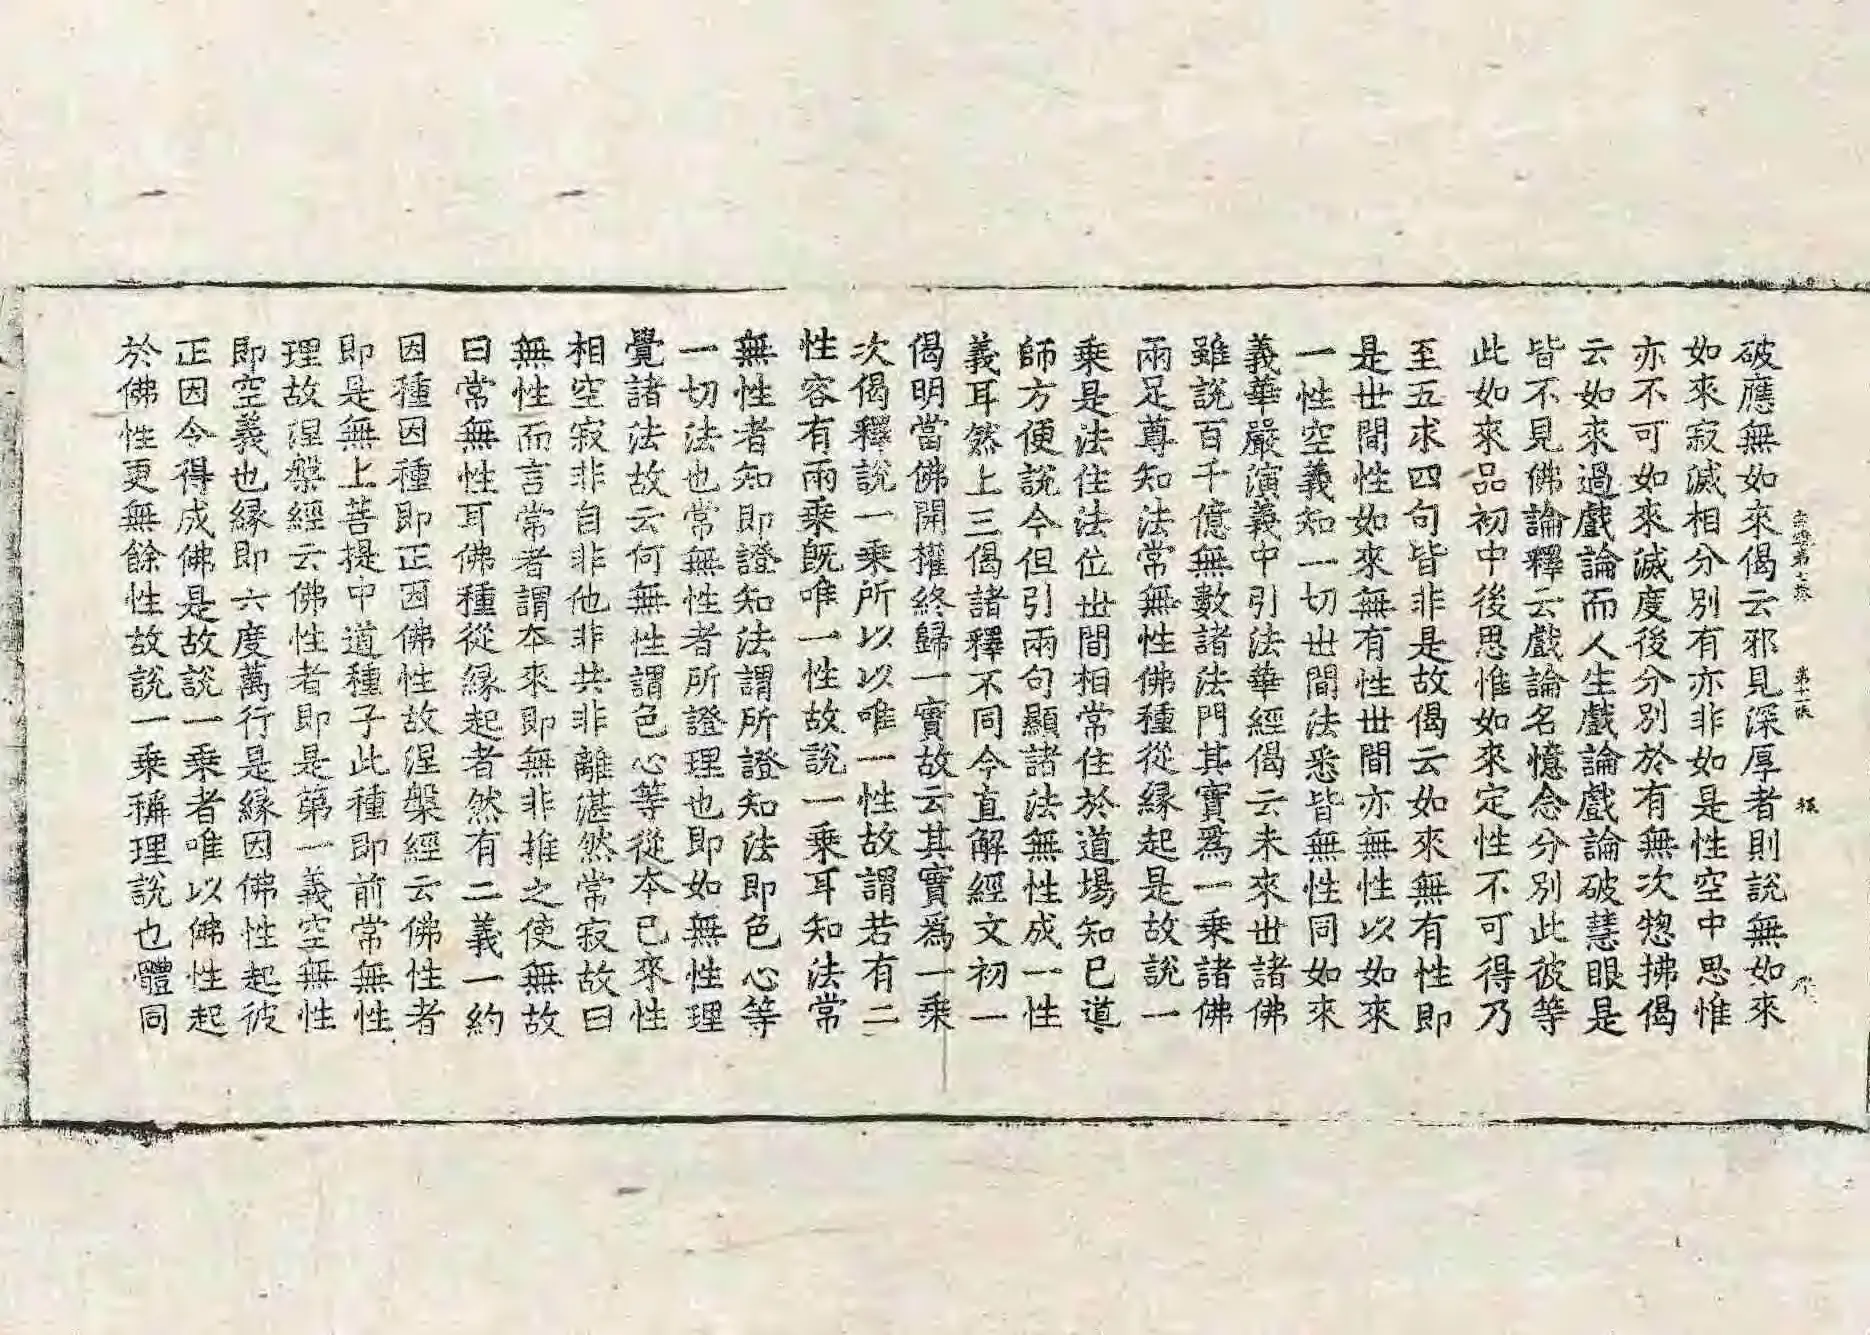 宗鏡第七卷　第十張　　禄　
破應無如來偈云邪見深厚者則說無如來
如來寂滅相分別有亦非如是性空中思惟
亦不可如來滅度後分別於有無次惣拂偈
云如來過戲論而人生戲論戲論破慧眼是
皆不見佛論釋云戲論名憶念分別此彼等
此如來品初中後思惟如來定性不可得乃
至五求四句皆非是故偈云如來無有性即
是世間性如來無有性世間亦無性以如來
一性空義知一切世間法悉皆無性同如來
義華嚴演義中引法華經偈云未來世諸佛
雖說百千億無數諸法門其實爲一乘諸佛
兩足尊知法常無性佛種從緣起是故說一
乘是法住法位世間相常住於道場知已道
師方便說今但引兩句顯諸法無性成一性
義耳然上三偈諸釋不同今直解經文初一
偈明當佛開權終歸一實故云其實爲一乘
次偈釋說一乘所以以唯一性故謂若有二
性容有兩乘旣唯一性故說一乘耳知法常
無性者知即證知法謂所證知法即色心等
一切法也常無性者所證理也即如無性理
覺諸法故云何無性謂色心等從本已來性
相空寂非自非他非共非離湛然常寂故曰
無性而言常者謂本來即無非推之使無故
曰常無性耳佛種從緣起者然有二義一約
因種因種即正因佛性故涅槃經云佛性者
即是無上菩提中道種子此種即前常無性
理故涅槃經云佛性者即是第一義空無性
即空義也緣即六度萬行是緣因佛性起彼
正因令得成佛是故說一乘者唯以佛性起
於佛性更無餘性故說一乘稱理說也體同